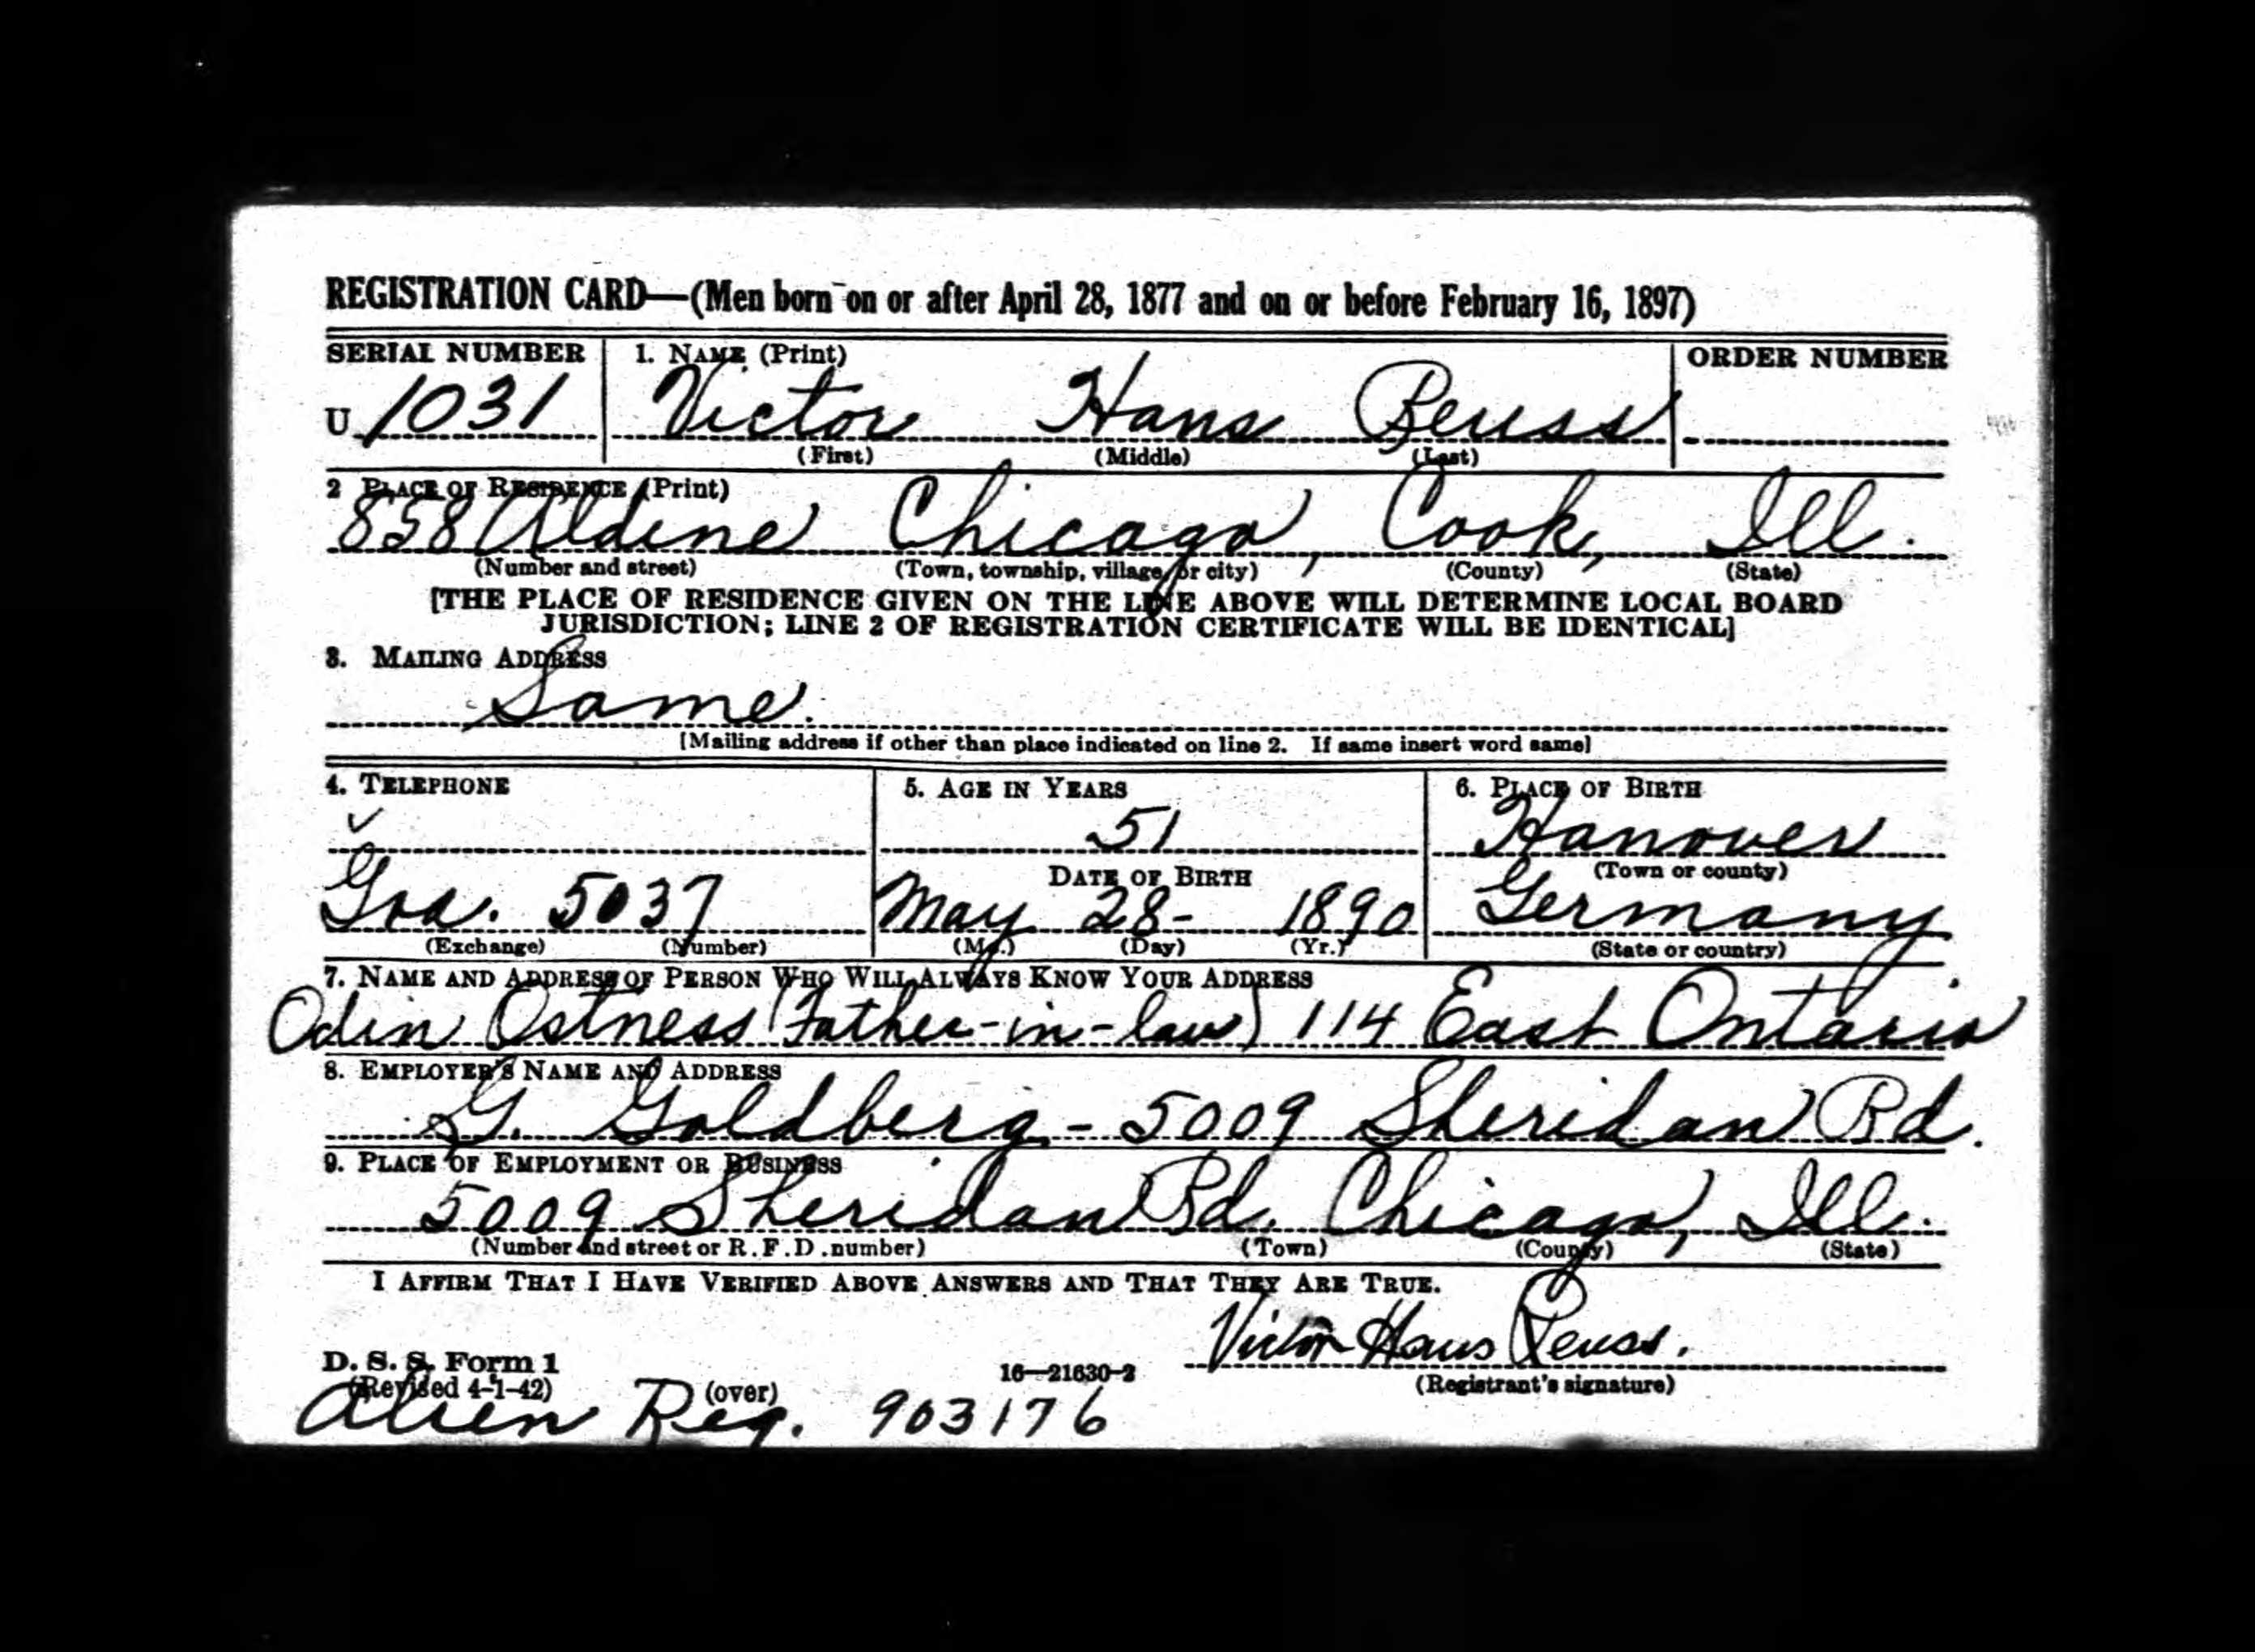 REGISTRATION CARD—(Men born on or after April 28, 1877 and on or before February 16, 1897)
SERIAL NUMBER 1. NAME (Print) ORDER NUMBER
U 1031 Victor Hans Reuss
(First) (Middle) (Last)
2 PLACE OF RESIDENCE (Print)
858 Aldine Chicago, Cook, Ill.
(Number and street) (Town, township, village, or city) (County) (State)
[THE PLACE OF RESIDENCE GIVEN ON THE LINE ABOVE WILL DETERMINE LOCAL BOARD
JURISDICTION; LINE 2 OF REGISTRATION CERTIFICATE WILL BE IDENTICAL]
3. MAILING ADDRESS
Same.
[Mailing address if other than place indicated on line 2. If same insert word same]
4. TELEPHONE 5. AGE IN YEARS 6. PLACE OF BIRTH
51 Hanover
DATE OF BIRTH (Town or county)
Gra. 5037 May 28- 1890 Germany
(Exchange) (Number) (Mo.) (Day) (Yr.) (State or country)
7. NAME AND ADDRESS OF PERSON WHO WILL ALWAYS KNOW YOUR ADDRESS
Odin Ostness (Father-in-law) 114 East Ontario
8. EMPLOYER'S NAME AND ADDRESS
G. Goldberg - 5009 Sheridan Rd.
9. PLACE OF EMPLOYMENT OR BUSINESS
5009 Sheridan Rd. Chicago, Ill.
(Number and street or R. F. D. number) (Town) (County) (State)
I AFFIRM THAT I HAVE VERIFIED ABOVE ANSWERS AND THAT THEY ARE TRUE.
Victor Hans Reuss.
D. S. S. Form 1 16—21630-2
(Revised 4-1-42) (over) (Registrant's signature)
Alien Reg. 903176